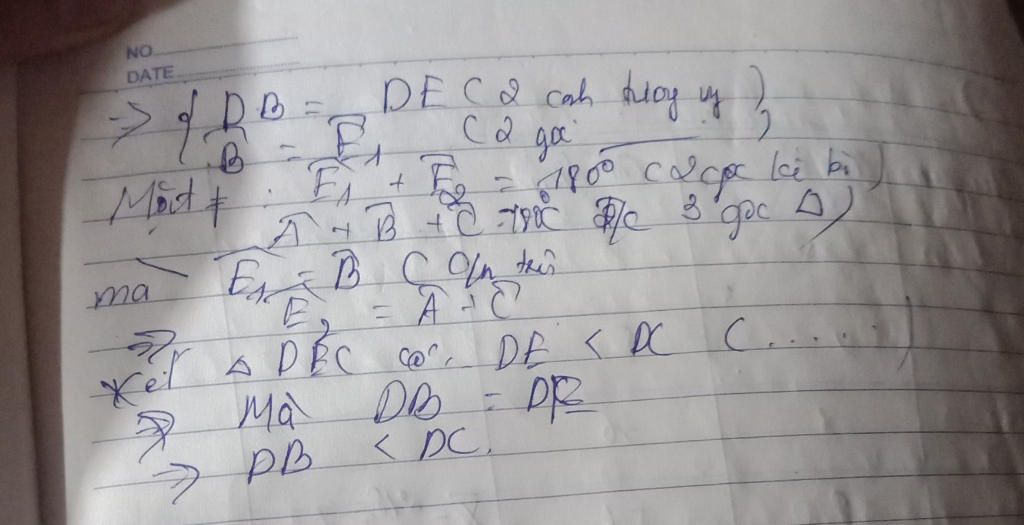 NO
DATE
=> { DB = DE ( 2 cah tương ứ )
B̂ = Ê1 ( 2 góc ——— )
Mặt ≠ : Ê1 + Ê2 = 180° ( 2 góc kề bù )
Â + B̂ + Ĉ = 180° 3 góc Δ )
mà Ê1 = B̂ ( c/m trên
=> Ê2 = Â + Ĉ
Xét Δ DEC có: DE < DC ( ..... )
=> Mà DB = DE
=> DB < DC.